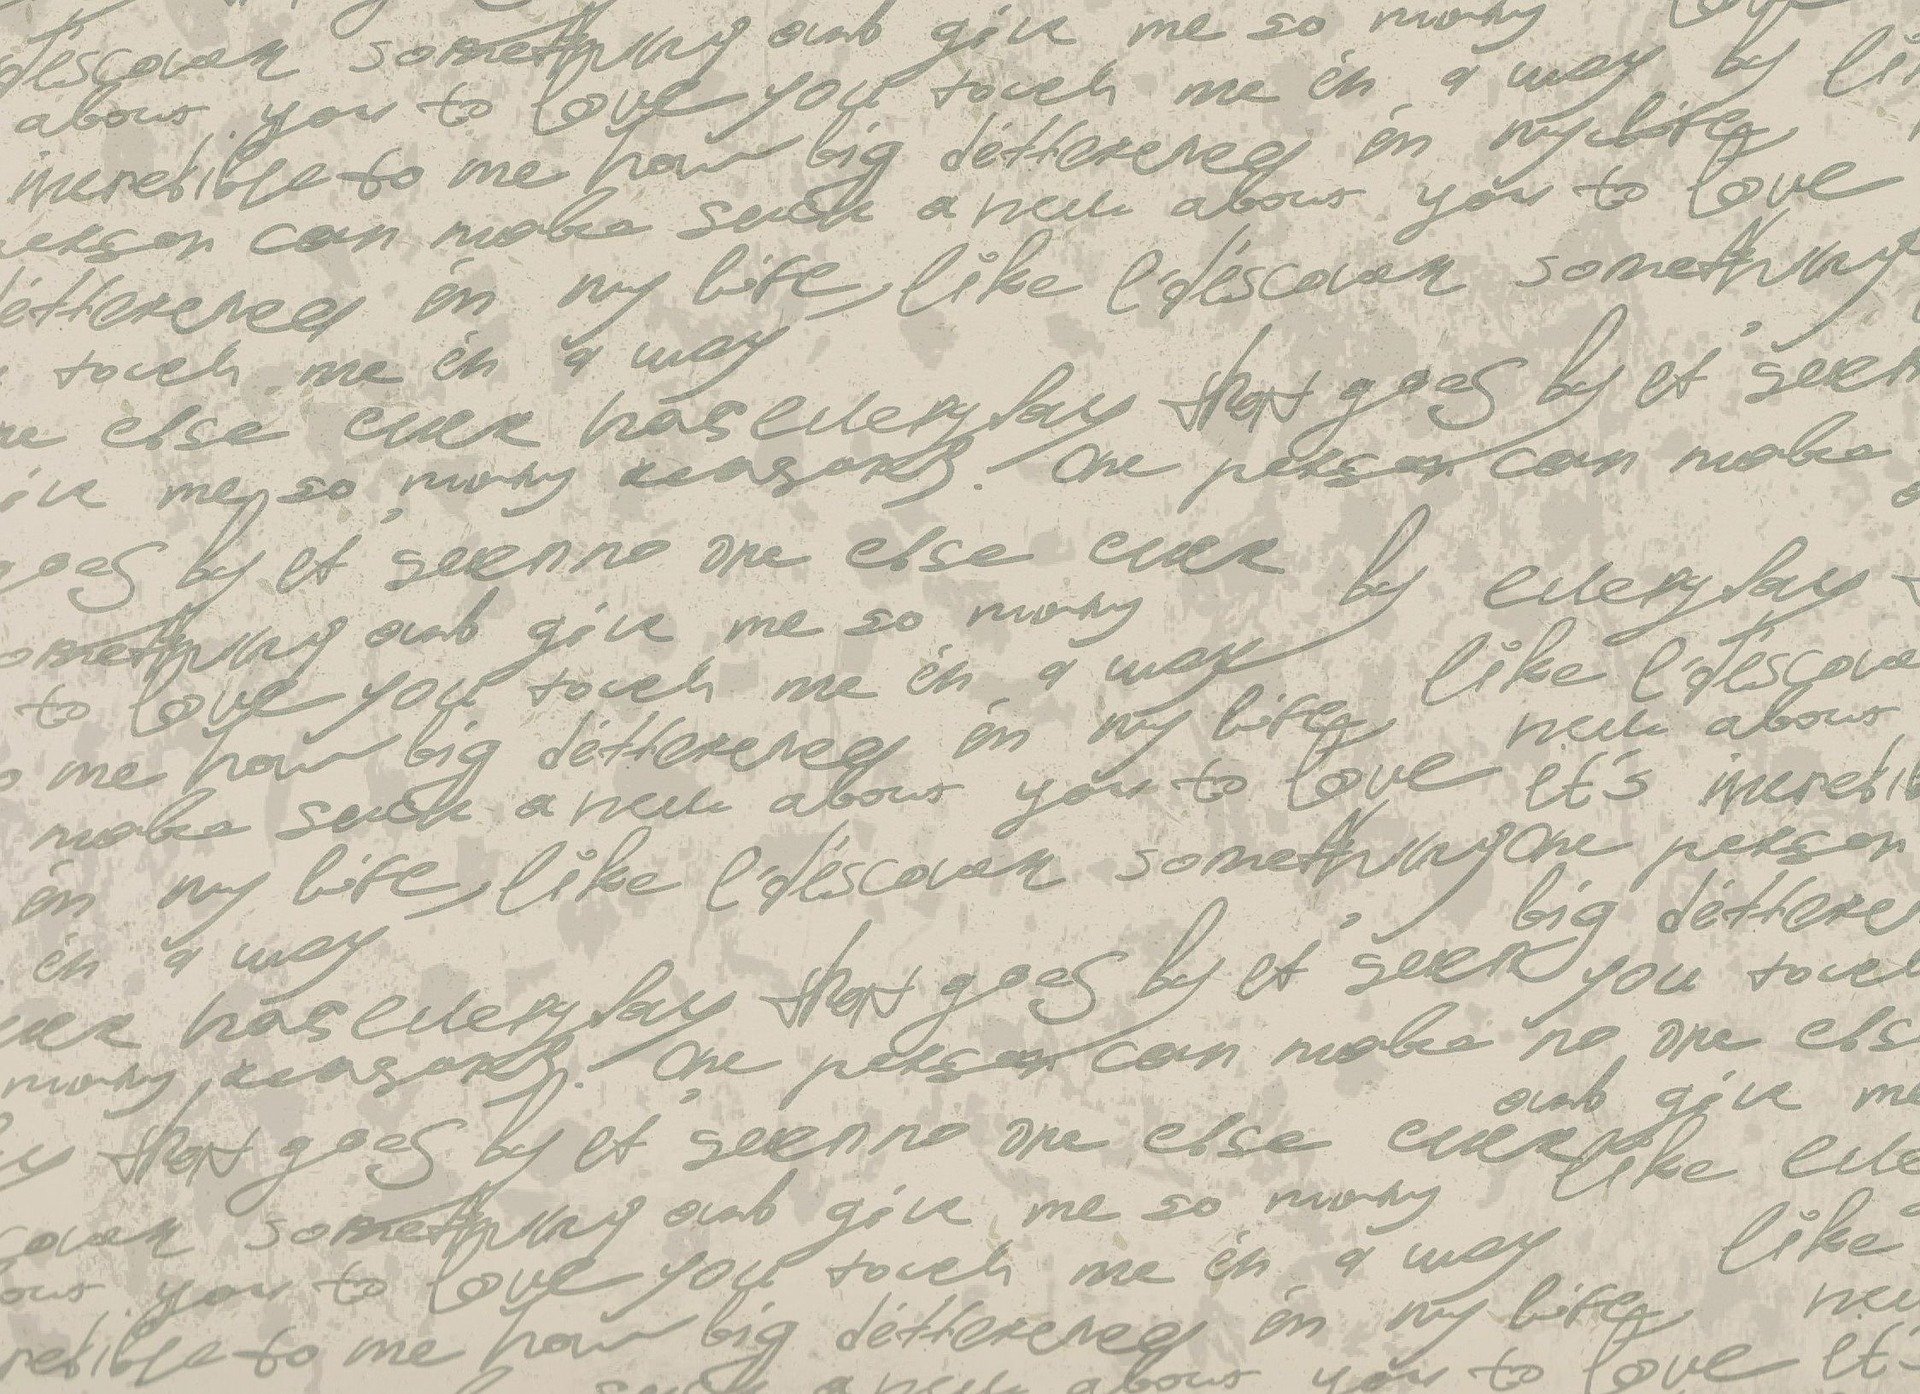 discover something and give me so many love
about you to love you touch me in a way by li
incredible to me how big difference in my life,
person can make such a new about you to love
difference in my life, like I discover something
touch me in a way
one else ever has every day that goes by it seem
give me so many reasons. One person can make
goes by it seem no one else ever by every day
something and give me so many
to love you touch me in a way like I discover
to me how big difference in my life, new about
make such a new about you to love it's incredib
in my life, like I discover something One person
in a way big differe
ever has every day that goes by it seem you touch
many reasons. One person can make no one else
and give me
that goes by it seem no one else ever like eve
cover something and give me so many
about you to love you touch me in a way like
redible to me how big difference in my life, new
such a new about you to love it's